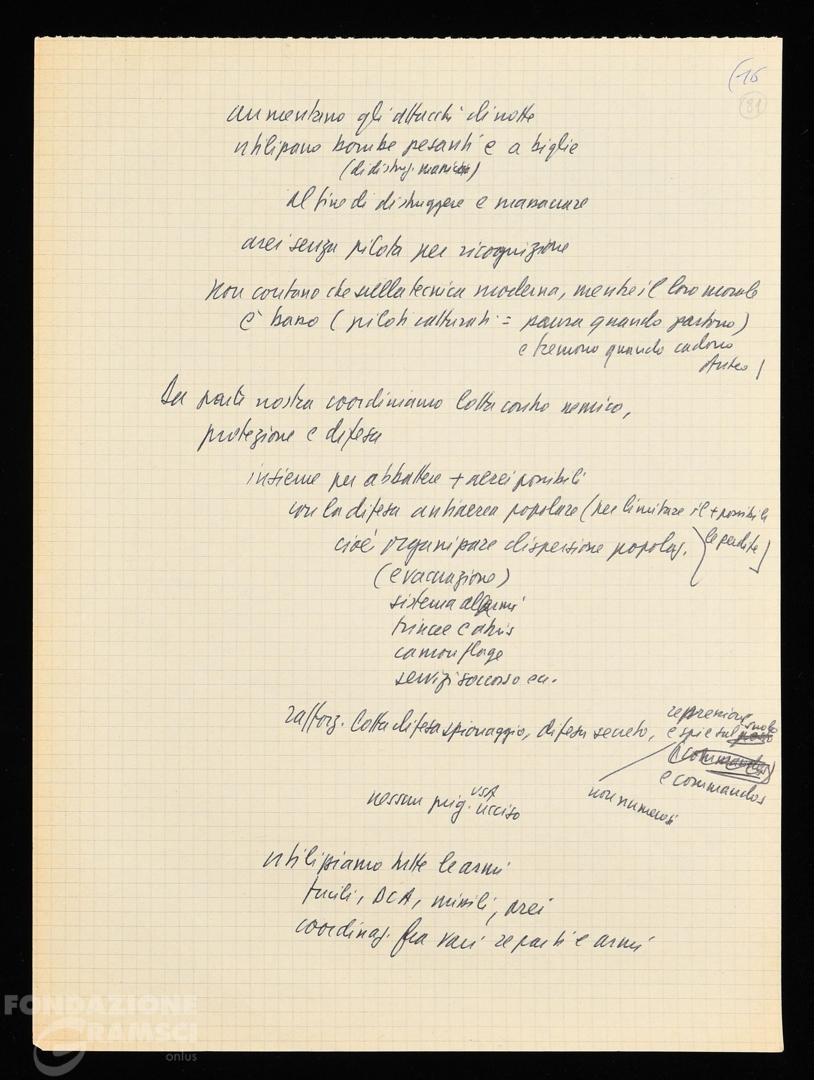 (16
(81)
aumentano gli attacchi di notte
utilizzano bombe pesanti e a biglie
(di distruz. mani
al fine di distruggere e massacrare
aerei senza pilota per ricognizione
Non contano che sulla tecnica moderna, mentre il loro morale
è basso (piloti catturati = paura quando partono)
e tremono quando cadono
Da parte nostra coordiniamo lotta contro nemico,
protezione e difesa
insieme per abbattere + aerei possibili
con la difesa antiaerea popolare (per limitare il + possibile
le perdite)
cioè organizzare dispersione popolaz.
(evacuazione)
sistema allarmi
trincee e abris
camouflage
servizi soccorso ecc.
rafforz. lotta difesa spionaggio, difesa secreto, repressione
e spie sul suolo
(commandos)
e commandos
non numerosi
nessun prig. USA ucciso
utilizziamo tutte le armi
fucili, DCA, missili, aerei
coordinaz. fra vari reparti e armi
FONDAZIONE
GRAMSCI
onlus